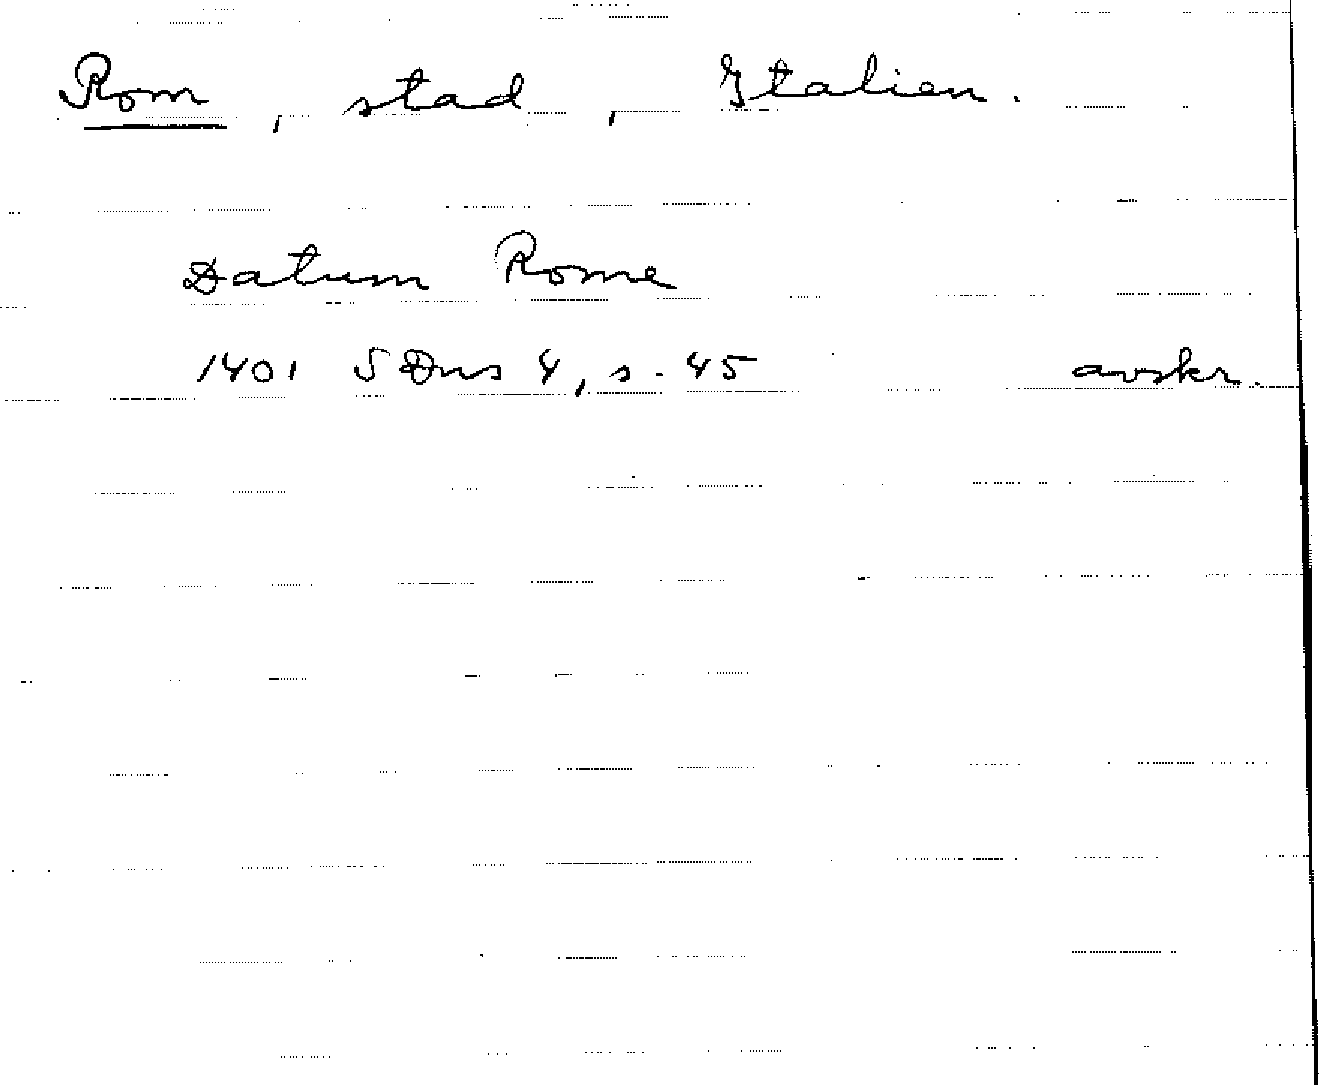 Rom, stad, Italien.
Datum Rome
1401 SDns 4, s. 45 avskr.